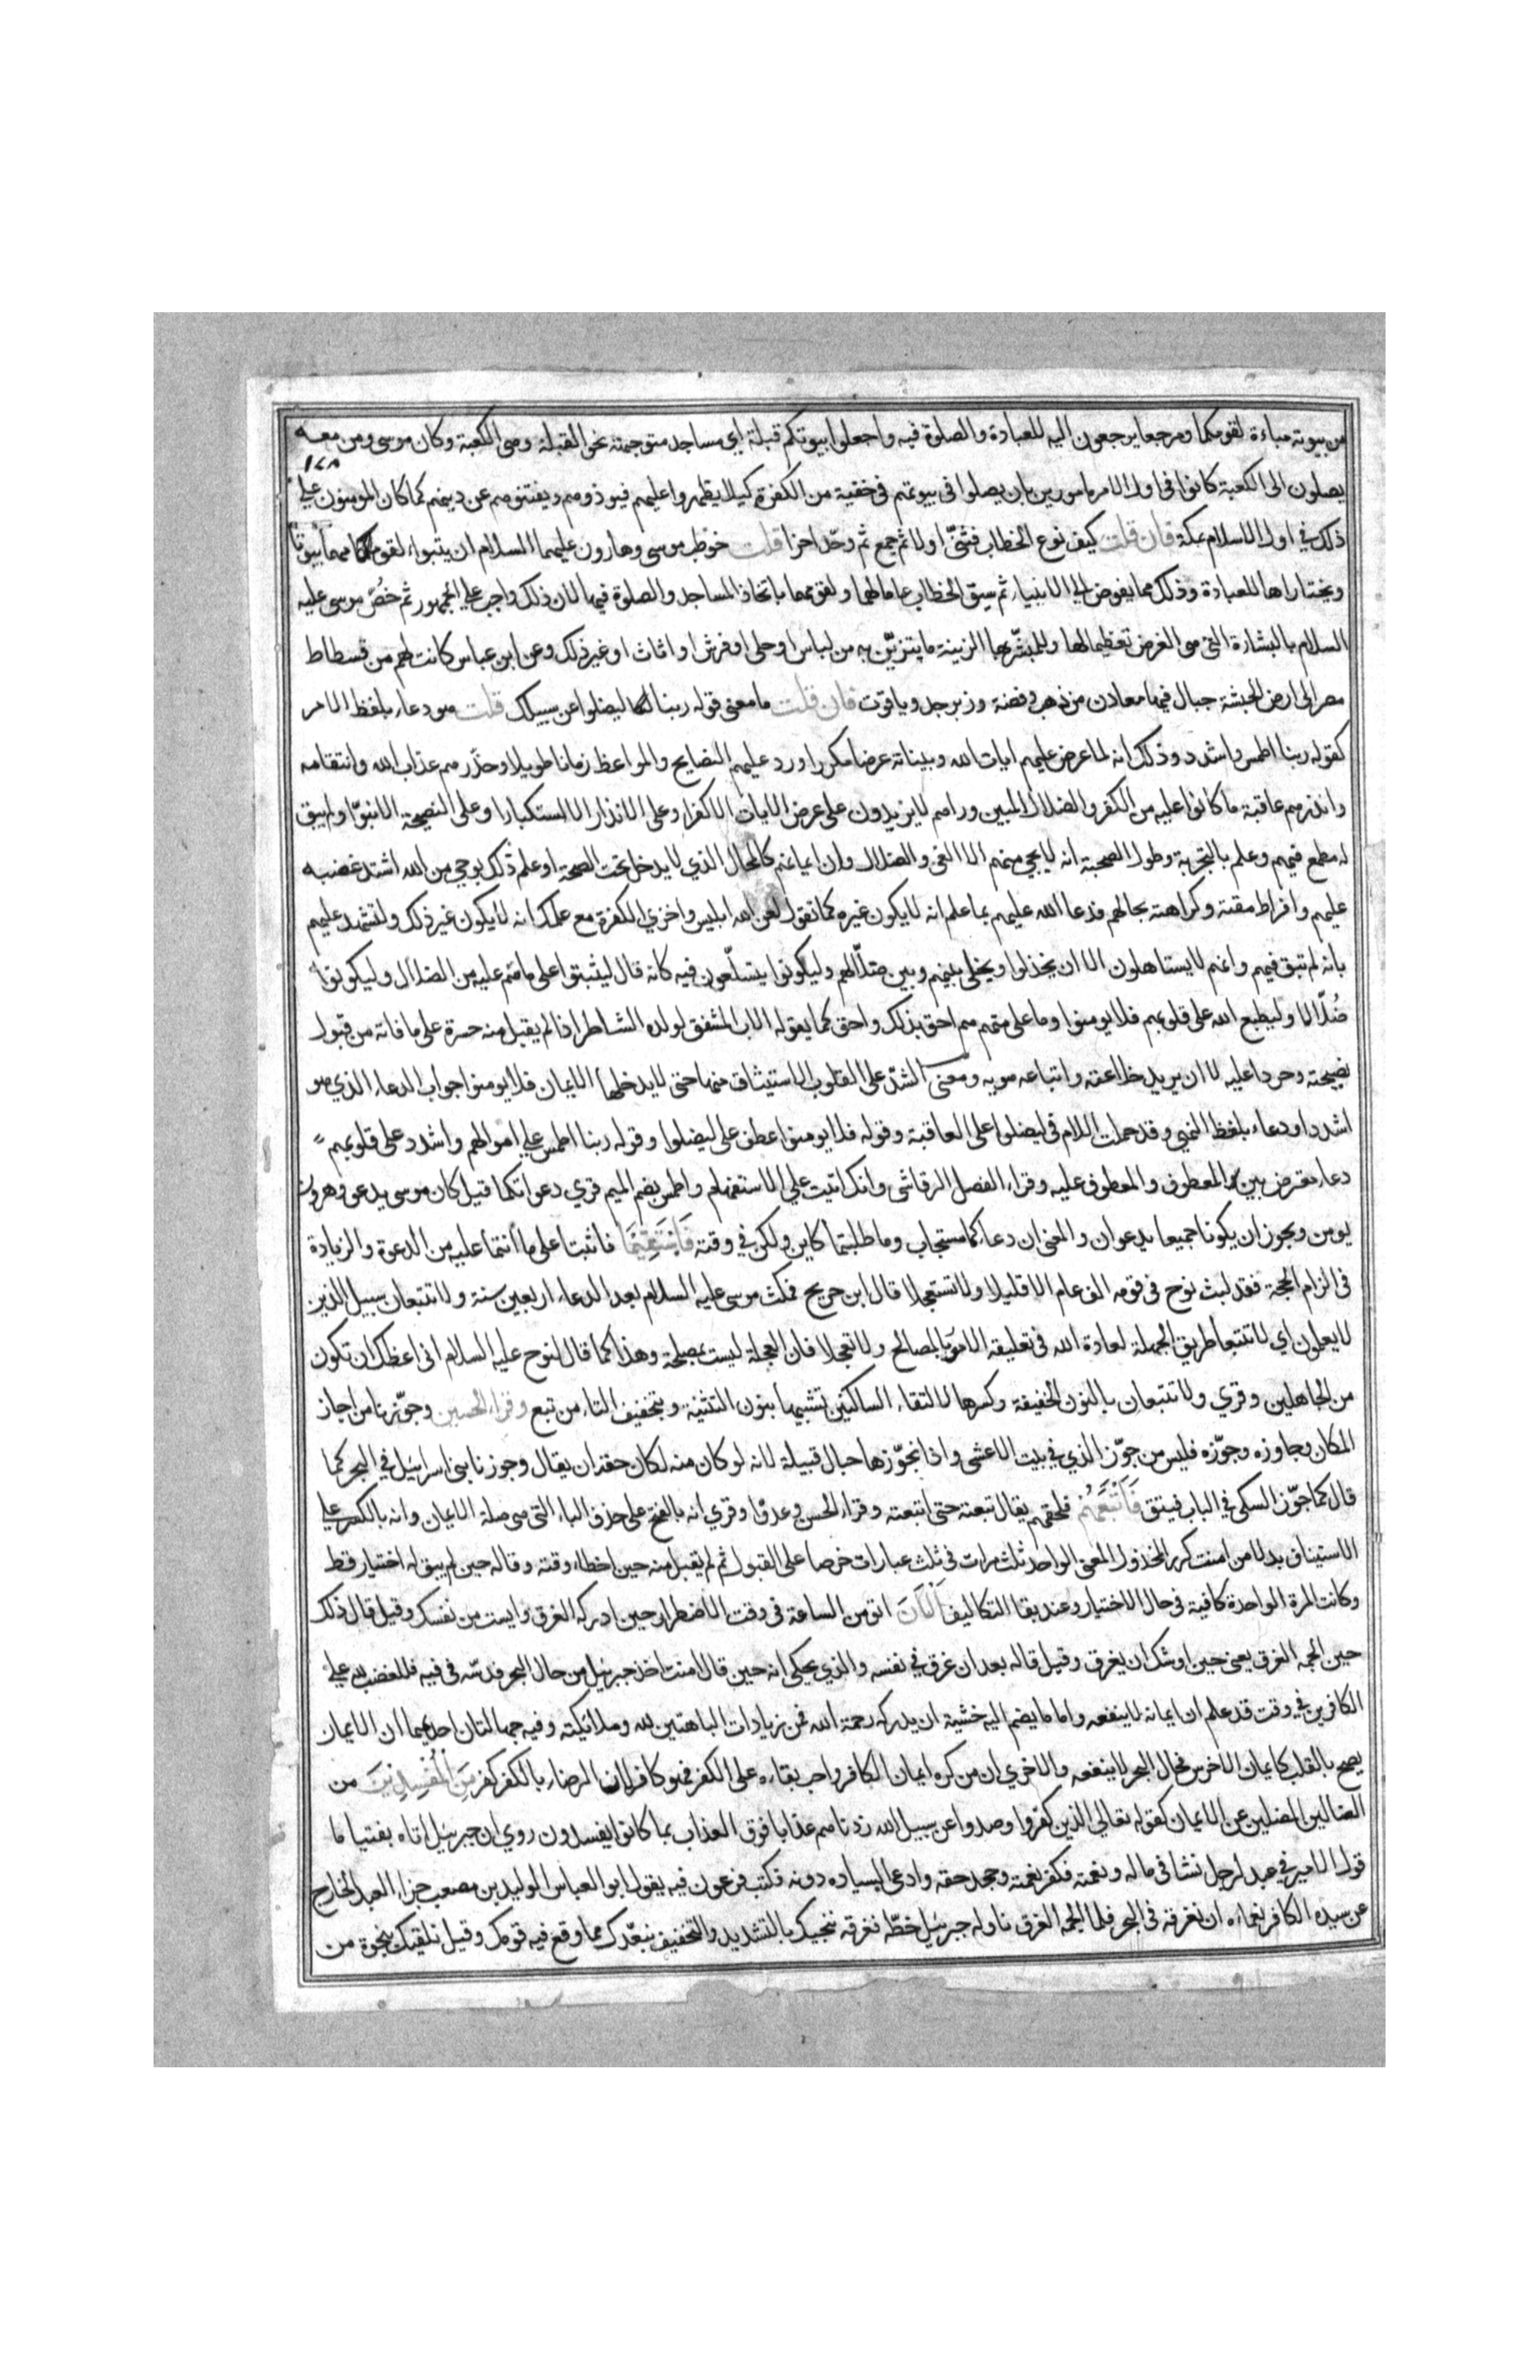 من بيوته مباءة لقومكما ومرجعا يرجعون اليه للعبادة والصلوة فيه واجعلوا بيوتكم قبلة اي مساجد متوجهة نحو القبلة وهي الكعبة وكان موسى ومن معه
١٧٨
يصلون الى الكعبة كانوا في اول الامر مامورين بان يصلوا في بيوتهم في خفية من الكفرة كيلا يظهروا عليهم فيوذوهم ويفتنوهم عن دينهم كما كان المومنون علي
ذلك في اول الاسلام بمكة فان قلت كيف نوع الخطاب فثنّى اولا ثم جمع ثم وحّد اخرا قلت خوطب موسى وهارون عليهما السلام ان يتبواء لقومهما بيوتا
ويختاراها للعبادة وذلك مما يفوض الي الانبياء ثم سيق الخطاب عاما لهما ولقومهما باتخاذ المساجد والصلوة فيها لان ذلك واجب علي الجمهور ثم خصّ موسى عليه
السلام بالبشارة التي هي الغرض تعظيما لها وللمبشّر بها الزينة ما يتزيّن به من لباس او حلى او فرش او اثاث او غير ذلك وعن ابن عباس كانت لهم من فسطاط
مصر الى ارض الحبشة جبال فيها معادن من ذهب وفضة وزبرجد وياقوت فان قلت ما معنى قوله ربنا ليضلوا عن سبيلك قلت هو دعاء بلفظ الامر
كقوله ربنا اطمس واشدد وذلك انه لما عرض عليهم ايات الله وبيناته عرضا مكررا وردد عليهم النصايح والمواعظ زمانا طويلا وحذّرهم عذاب الله وانتقامه
وانذرهم عاقبة ما كانوا عليه من الكفر والضلال المبين وراهم لا يزيدون على عرض الايات الا كفرا وعلى الانذار الا استكبارا وعلى النصيحة الا نبوّا ولم يبق
له مطمع فيهم وعلم بالتجربة وطول الصحبة انه لا يجي منهم الا الغى والضلال وان ايمانهم كالمحال الذي لا يدخل تحت الصحة او علم ذلك بوحي من الله اشتد غضبه
عليهم وافراط مقته وكراهته بحالهم فدعا الله عليهم بما علم انه لا يكون غيره كما تقول لعن الله ابليس واخزي الكفرة مع علمك انه لا يكون غير ذلك ولتشهد عليهم
بانه لم تبق فيهم وانهم لا يستاهلون الا ان يخذلوا ويخلى بينهم وبين ضلالهم وليكونوا يتسلّعون فيه كانه قال ليثبتوا على ما هم عليه من الضلال وليكونوا
ضُلّالا وليطبع الله على قلوبهم فلا يومنوا وما على منهم هم احق بذلك واحق كما يقوله الاب المشفق لولده الشاطر اذا لم يقبل منه حسرة على ما فاته من قبول
نصيحته وحردا عليه لا ان يريد خلاعته واتباعه هويه ومعنى الشدّ على القلوب الاستيثاق منها حتى لا يدخلها الايمان فلا يومنوا جواب الدعاء الذي هو
اشدد او دعاء بلفظ النهي وقد حملت اللام في ليضلوا على العاقبة وقوله فلا يومنوا عطف على ليضلوا وقوله ربنا اطمس علي اموالهم واشدد على قلوبهم
دعاء معترض بين المعطوف والمعطوف عليه وقراء الفضل الرقاشى وانك اتيت علي الاستفهام واطمس بضم الميم قري دعواتكما قيل كان موسى يدعو وهرون
يومن ويجوز ان يكونا جميعا يدعوان والمعنى ان دعاءكما مستجاب وما طلبتما كاين ولكن في وقته فَاسْتَقِيمَا فاثبتا على ما انتما عليه من الدعوة والزيادة
في الزام الحجة فقد لبث نوح في قومه الف عام الا قليلا ولا تستعجلا قال ابن جريج فمكث موسى عليه السلام بعد الدعاء اربعين سنة ولا تتبعان سبيل الذين
لا يعلمون اي لا تتبعا طريق الجهلة لعادة الله في تعليقه الامور بالمصالح ولا تعجلا فان العجلة ليست بمصلحة وهذا كما قال لنوح عليه السلام انى اعظك ان تكون
من الجاهلين وقري ولا تتبعان بالنون الخفيفة وكسرها لالتقاء الساكنين تشبيها بنون التثنية وبتخفيف التاء من تبع وقراء الحسن وجوّزنا من اجاز
المكان وجاوزه وجوّزه فليس من جوّز الذي في بيت الاعشى واذا تجوّزها حبال قبيلة لانه لو كان منه لكان حقه ان يقال وجوزنا بنى اسرايىل في البحر كما
قال كما جوّز السكى في الباب فيتق فَاَتْبَعَهُمْ فلحقهم يقال تبعته حتى اتبعته وقراء الحسن وعدوّا وقري انه بالفتح على حذف الباء التي هي صلة الايمان وانه بالكسر علي
الاستيناف بدلا من امنت كرر المخذول المعنى الواحد ثلث مرات في ثلث عبارات حرصا على القبول ثم لم يقبل منه حين اخطاء وقته وقاله حين لم يبق له اختيار قط
وكانت المرة الواحدة كافية في حال الاختيار وعند بقا التكاليف آلْآنَ اتومن الساعة في وقت الاضطرار حين ادركه الغرق وايست من نفسك وقيل قال ذلك
حين الجمه الغرق يعنى حين اوشك ان يغرق وقيل قاله بعد ان غرق في نفسه والذي يحكى انه حين قال امنت اخذ جبرىل من حال البحر فدسّه في فيه فللغضب لله علي
الكافرين في وقت قد علم ان ايمانه لا ينفعه واما ما يضم اليه خشية ان يدركه رحمة الله فمن زيادات الباهتين لله وملائيكته وفيه جهالتان احديهما ان الايمان
يصح بالقلب كايمان الاخرس فحال البحر لا ينفعه والاخري ان من كره ايمان الكافر واحب بقاءه على الكفر فهو كافر لان الرضاء بالكفر كفر مِنَ الْمُفْسِدِينَ من
الضالين المضلين عن الايمان كقوله تعالي الذين كفروا وصدوا عن سبيل الله زدناهم عذابا فوق العذاب بما كانوا يفسدون روي ان جبرىل اتاه بفتيا ما
قول الامير في عبد لرجل نشا في ماله ونعمته فكفر نعمته وجحد حقه وادعى السيادة دونه فكتب فرعون فيه يقول ابو العباس الوليد بن مصعب جزاء العبد الخارج
عن سيده الكافر نعماءه ان تغرقه في البحر فلما الجمه الغرق ناوله جبرىل خطّه فعرفه ننجيك بالتشديد والتخفيف نبعّدك مما وقع فيه قومك وقيل نلقيك بنجوة من